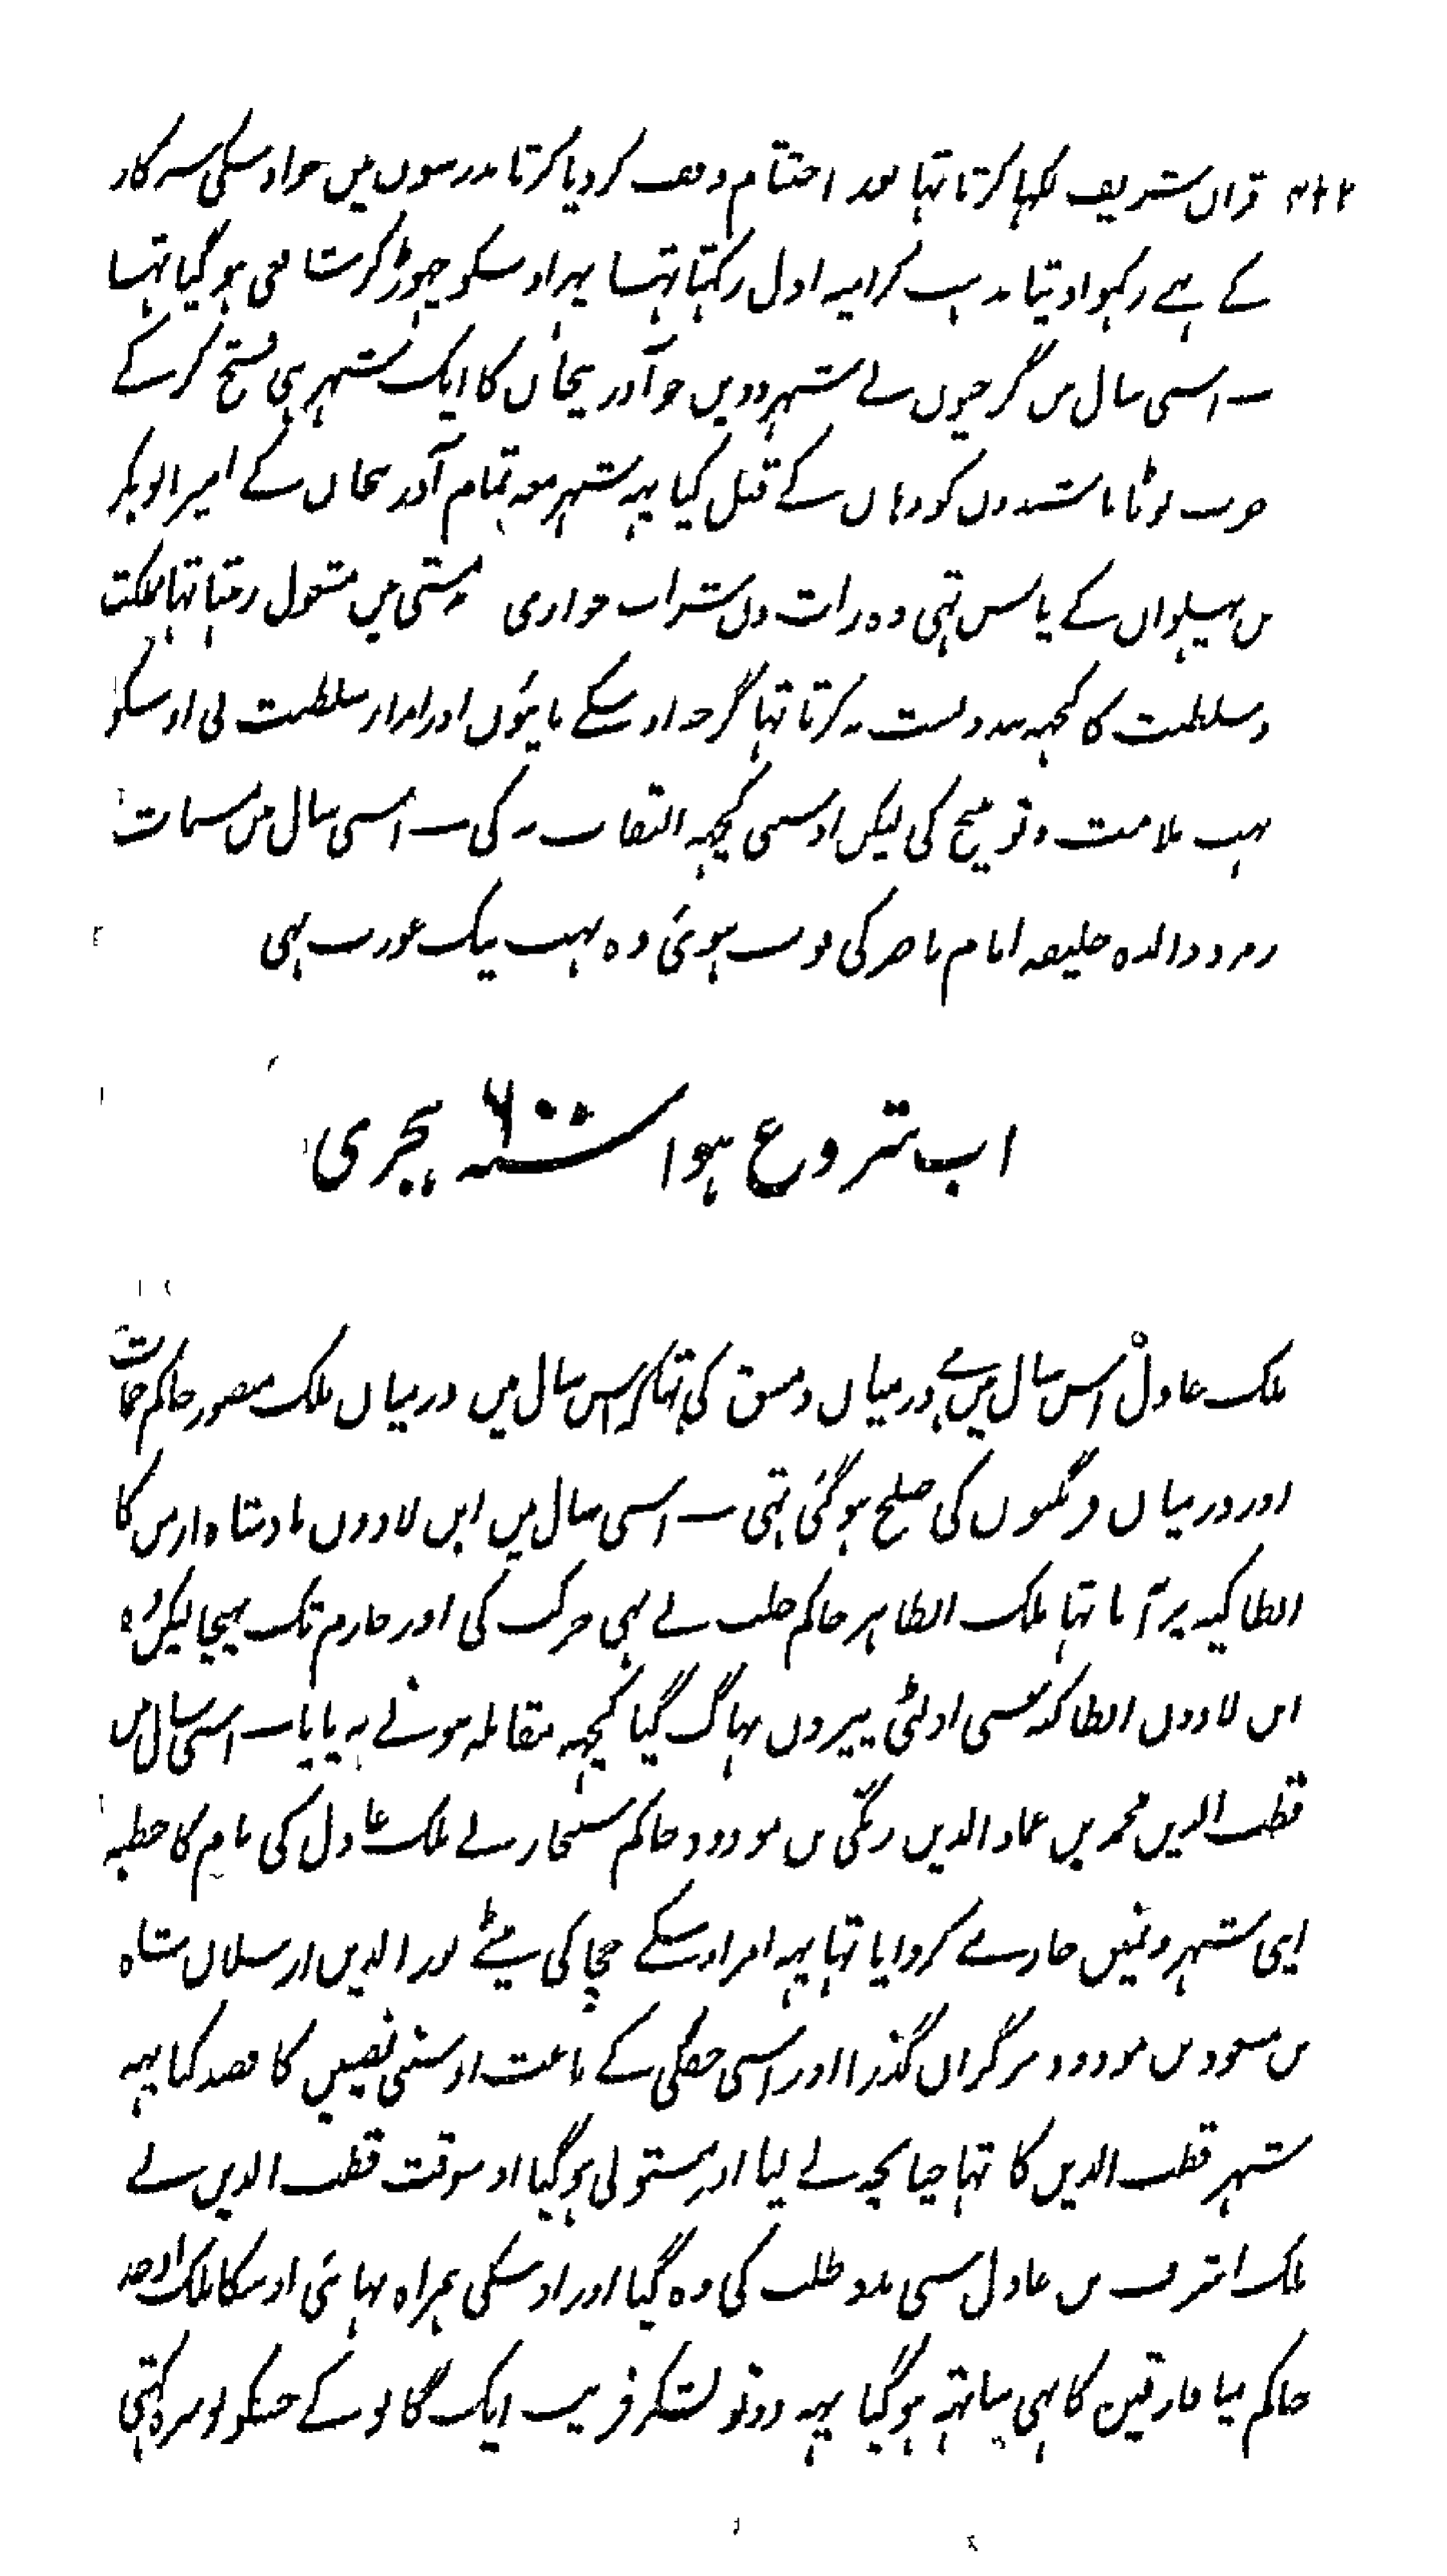 قران شریف لکہا کرتا تہا بعد اختتام وقف کر دیا کرتا مدرسوں میں جو اوسکی سرکار
کے ہے رکہوا دیتا مذہب کرامیہ اول رکہتا تہا پہر اوسکو چہوڑ کر شافعی ہو گیا تہا
ـ اسی سال میں گرجیوں نے شہر دوین جو آذربیجان کا ایک شہر ہی فتح کر کے
خوب لوٹا باشندوں کو وہاں کے قتل کیا یہہ شہر معہ تمام آذربیجان کے امیر ابوبکر
بن پہلوان کے پاس تہی وہ رات دن شراب خواری مستی میں مشغول رہتا تہا مملکت
و سلطنت کا کچہہ بندوبست نہ کرتا تہا گرچہ اوسکے نایٔبوں اور امراء سلطنت نی اوسکو
بہت ملامت و توبیخ کی لیکن اوسنی کچہہ التفات نہ کی ـ اسی سال میں مسمات
زمرد والدہ خلیفہ امام ناصر کی فوت ہویٔ وہ بہت نیک عورت تہی
اب شروع ہوا سنہ ۶۰۰ ہجری
ملک عادل اس سال میں بہی درمیان دمشق کی تہا کہ اس سال میں درمیان ملک منصور حاکم حمات
اور درمیان فرنگیوں کی صلح ہو گیٔ تہی ـ اسی سال میں ابن لاووں بادشاہ ارمن کا
انطاکیہ پر آیا تہا ملک الظاہر حاکم حلب نے بہی حرکت کی اور حارم تک پہنچا لیکن وہ
ابن لاووں انطاکیہ سی اولٹی پیروں بہاگ گیا کچہہ مقابلہ ہونے نہ پایا ـ اسی سال میں
قطب الدین محمد بن عماد الدین زنگی بن مودود حاکم سنجار نے ملک عادل کی نام کا خطبہ
اپنی شہرونمیں جارے کروایا تہا یہہ امر اوسکے چچا کی بیٹے نور الدین ارسلان شاہ
بن مسعود بن مودود پر گراں گذرا اور اسی خفگی کے باعث اوسنی نصیبین کا قصد کیا یہہ
شہر قطب الدین کا تہا چنانچہ لے لیا اور مستولی ہو گیا اوسوقت قطب الدین نے
ملک اشرف بن عادل سی مدد طلب کی وہ گیا اور اوسکی ہمراہ بہایٔ اوسکا ملک اوحد
حاکم میافارقین کا بہی ساتہہ ہو گیا یہہ دونو لشکر قریب ایک گانو کے جسکو بوشرہ کہتی